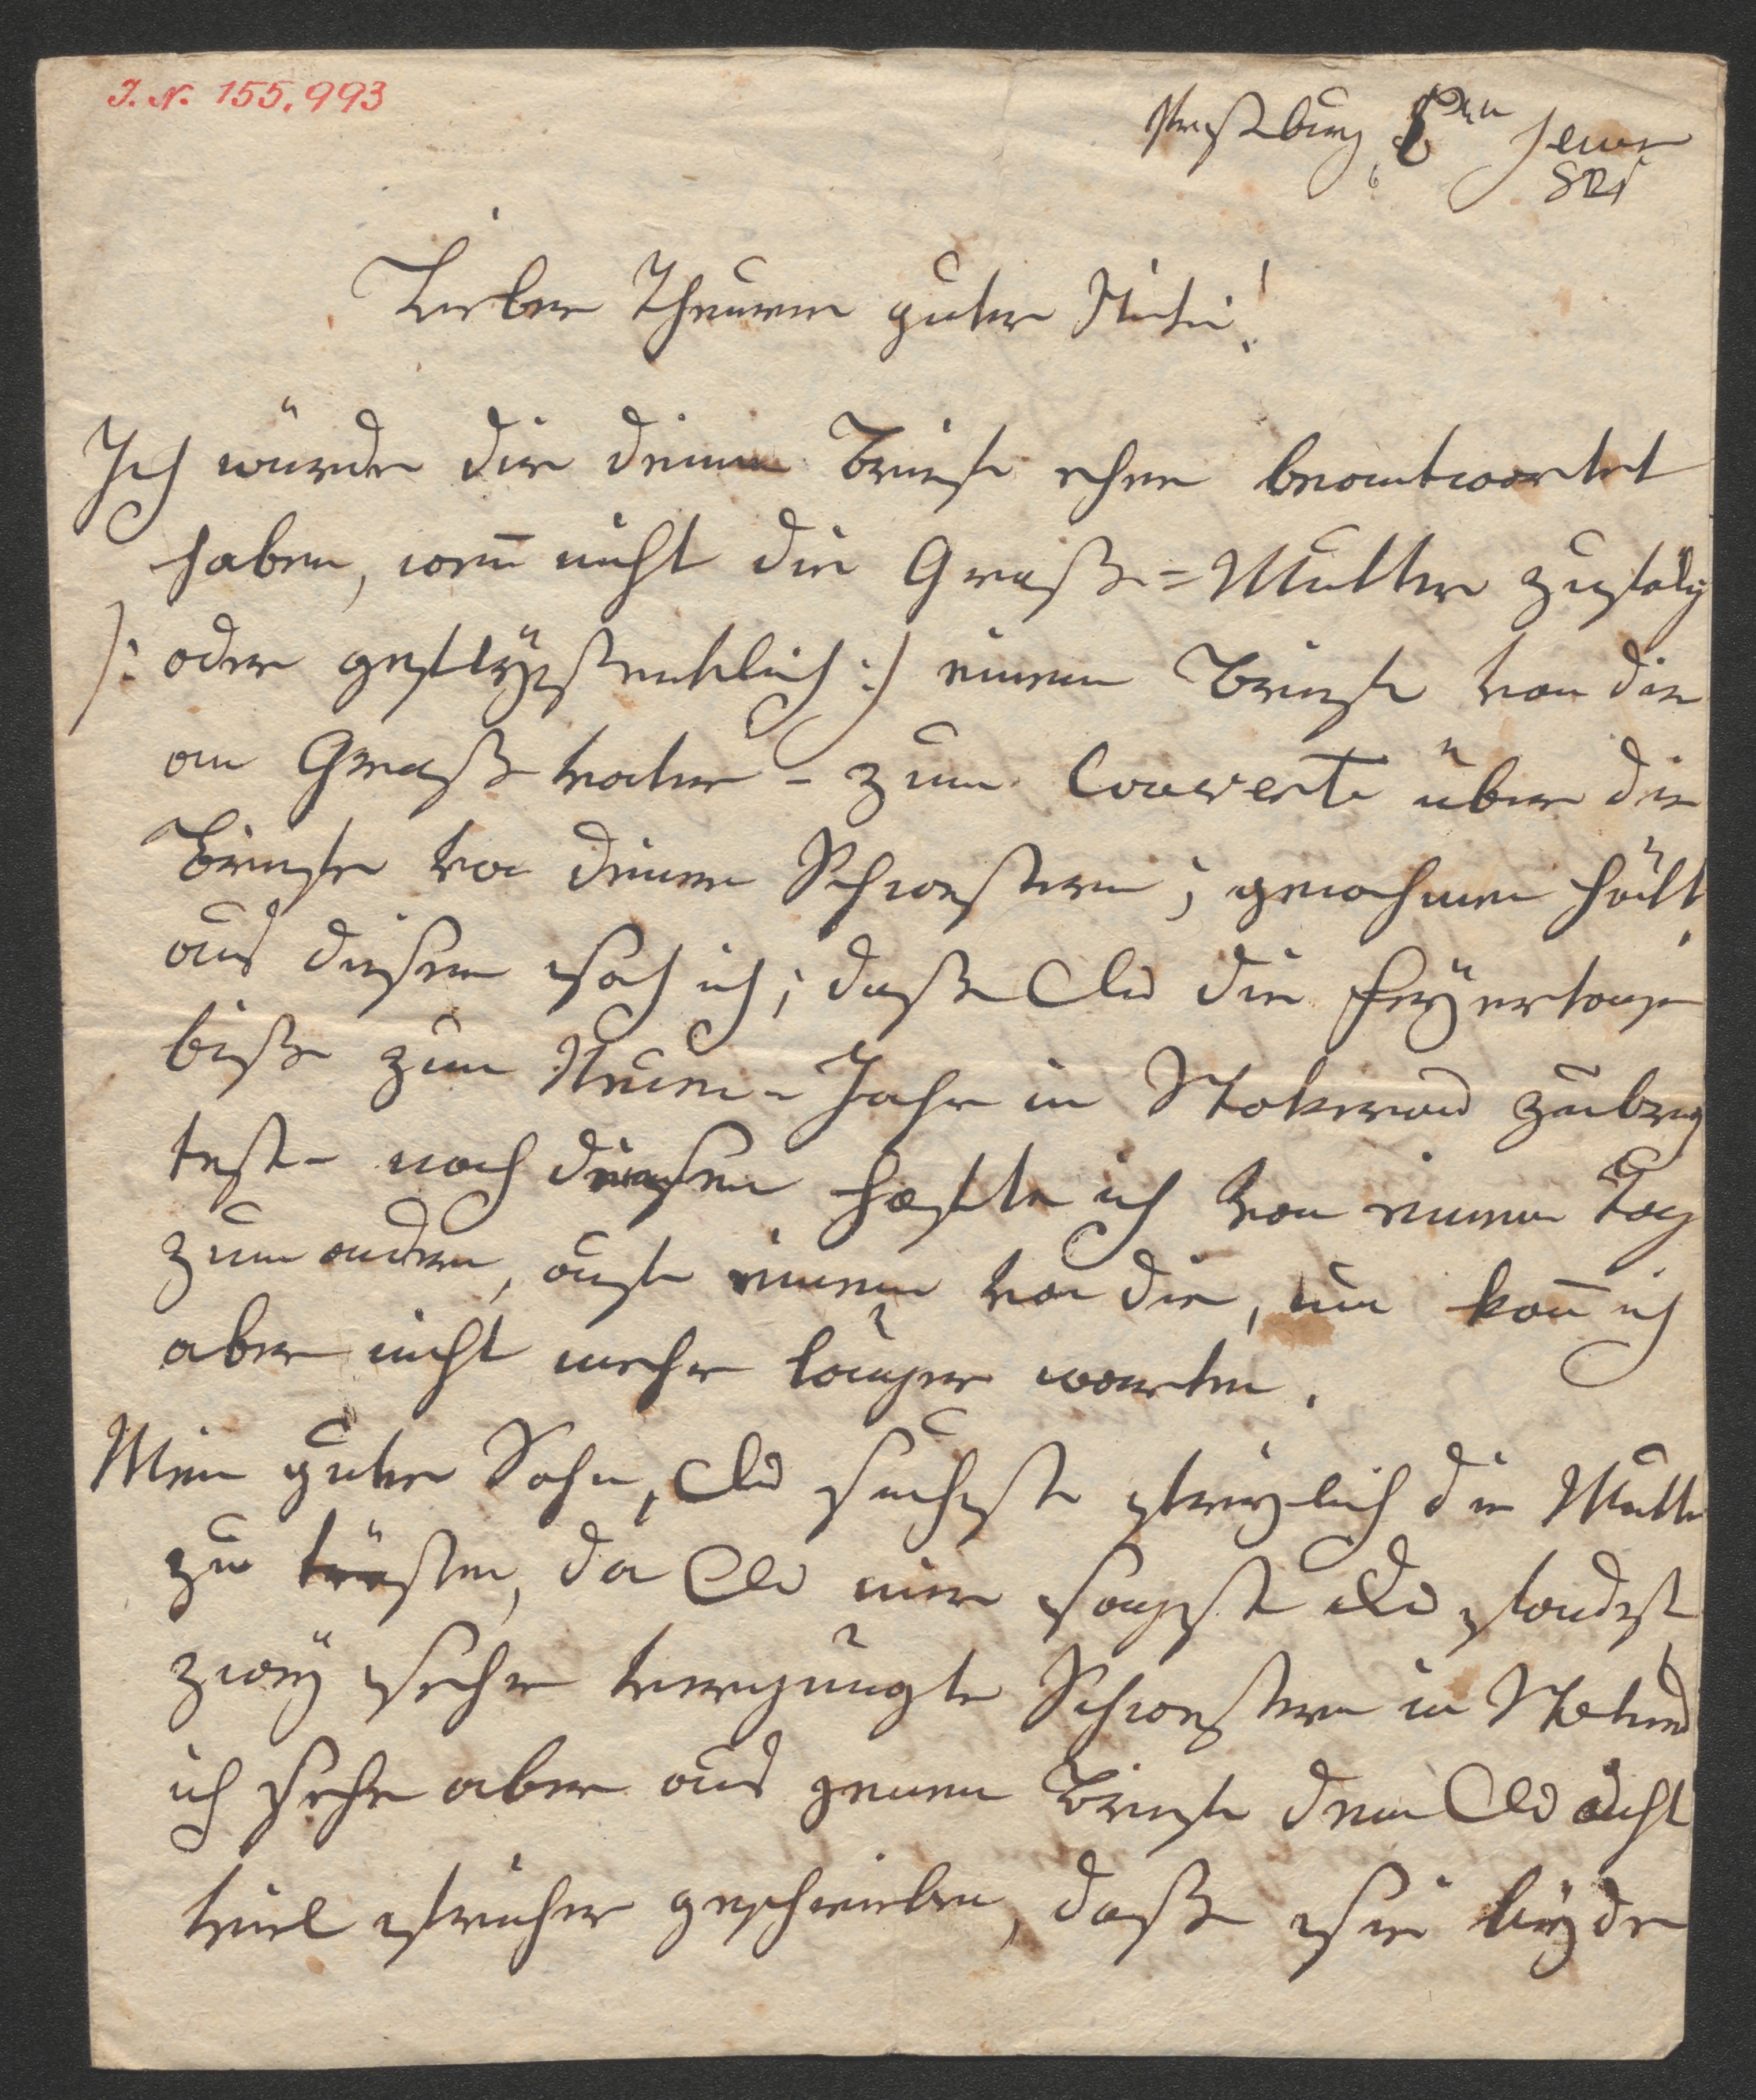 I. N. 155.993
Preßburg 8ten Jener
821
Lieber Theurer guter
Ich würde dir deinen Briefe eher beantwortet
haben, wen̄ nicht die Groß=Mutter zufälig
/: oder geflißentlich :/ einen Briefe von dir
an Großvater – zum Couverte über die
Briefe von deinen Schwestern; genohmen hätt,
aus diesen sah ich; daß Du die Feÿertage
biß zum Neuen-Jahr in Stokerau zubrag
test – nach diesen hofte ich von einen Tag
zum andern, aufe einen von dir, nun kan̄ ich
aber nicht mehr länger warten.
Mein guter Sohn, Du suchst freylich die Mutter
zu trösten, da Du mir sagest Du fandest
zweÿ sehr vergnügte Schwestern in
ich sehe aber aus jenen Briefe den Du nicht
viel früher geschrieben, daß sie beÿde